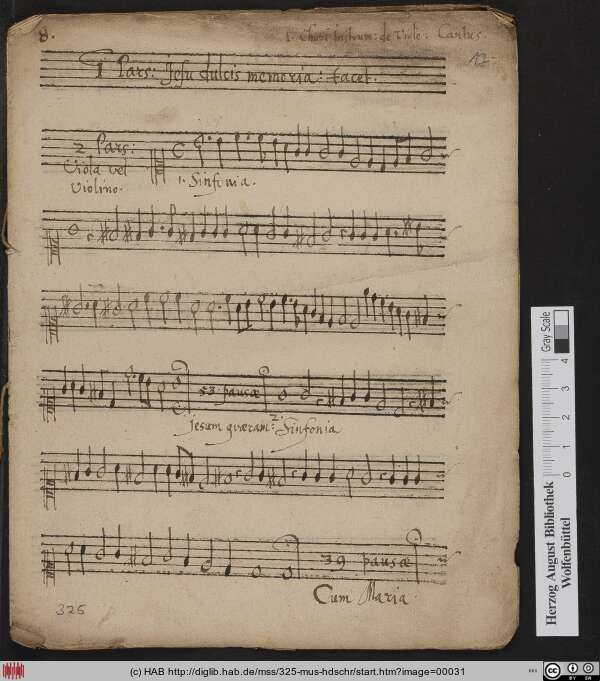 8.
1. Chori Instrum: de Viole. Cantus.
17
1 Pars: Jesu dulcis memoria: tacet.
2 Pars:
Viola vel
Violino.
1. Sinfonia.
53. pausæ
Jesum quæram: 2. Sinfonia
39 pausæ
Cum Maria
325
Gray Scale
0 1 2 3 4
Herzog August Bibliothek
Wolfenbüttel
(c) HAB http://diglib.hab.de/mss/325-mus-hdschr/start.htm?image=00031